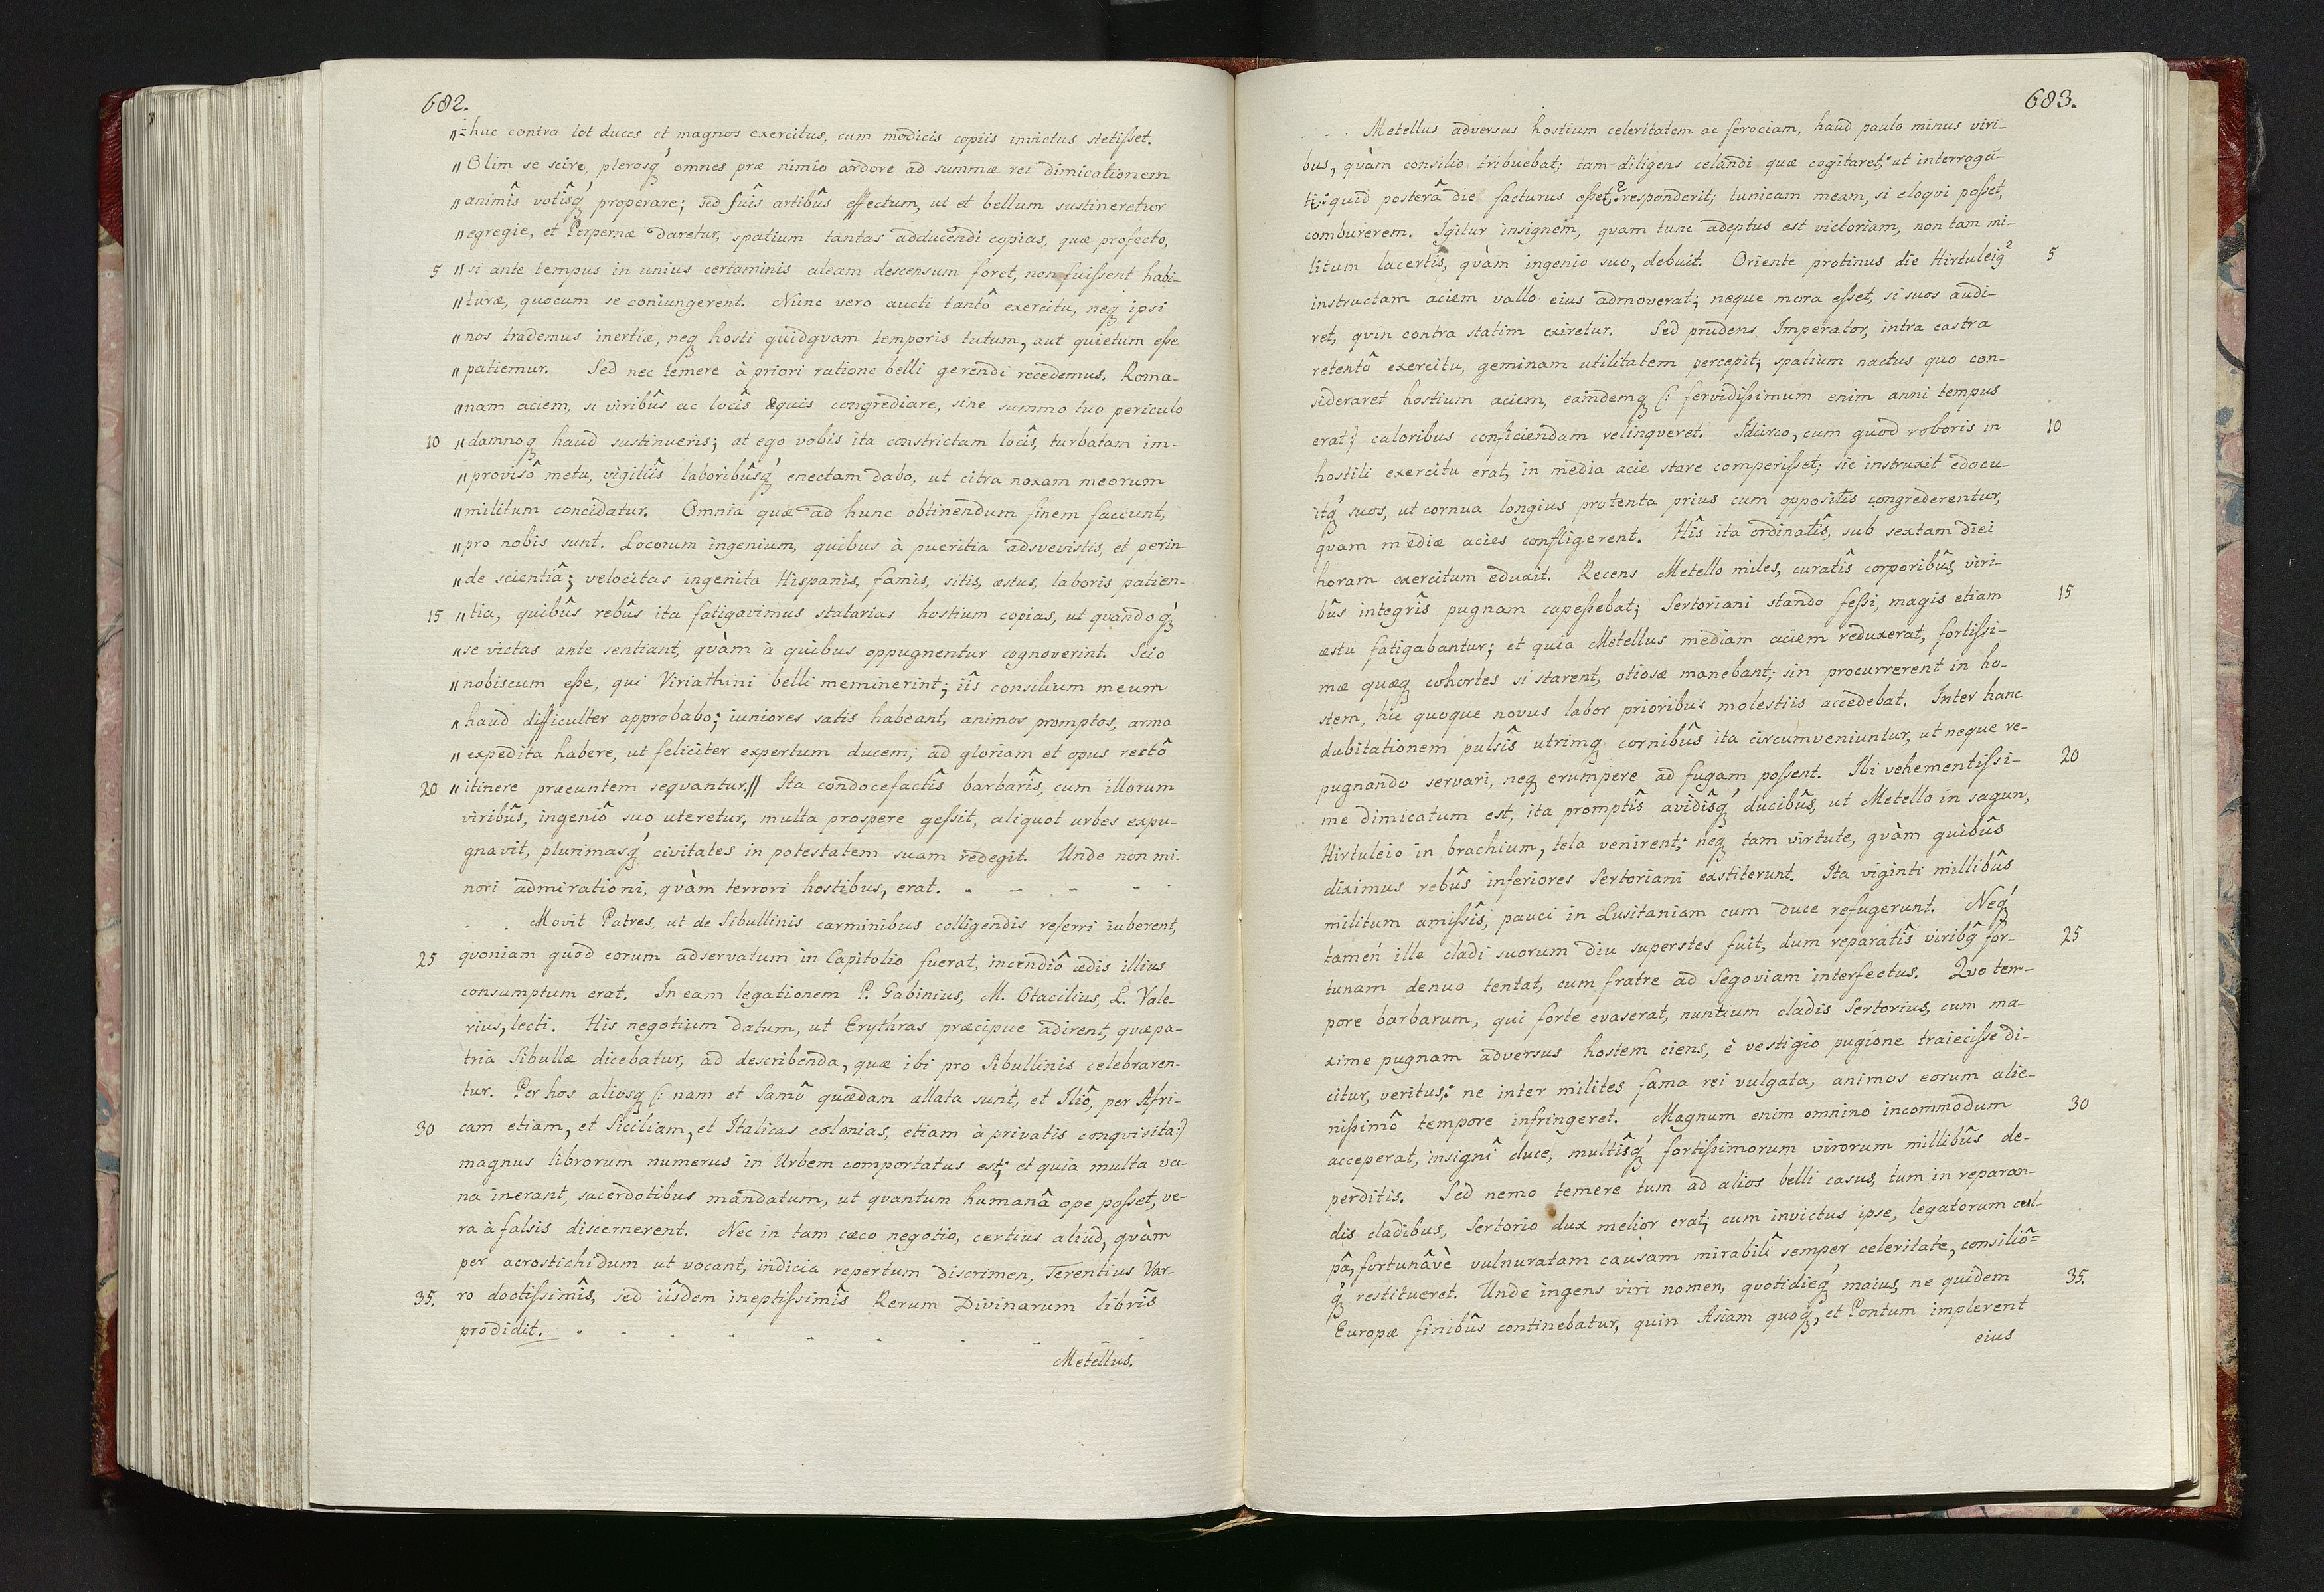 682.
〃huc contra tot duces et magnos exercitus, cum modicis copiis invictus stetisset.
〃Olim se scire, plerosq́ omnes præ nimio ardore ad summæ rei dimicationem
〃animîs votîsq́ properare; sed suîs artibûs effectum, ut et bellum sustineretur
〃egregie, et Perpernæ daretur, spatium tantas adducendi copias, quæ profecto,
5 〃si ante tempus in unius certaminis aleam descensum foret, non fuissent habi-
〃turæ, quocum se coniungerent. Nunc vero aucti tantô exercitu, neq ipsi
〃nos trademus inertiæ, neq hosti quidqvam temporis tutum, aut quietum esse
〃patiemur. Sed nec temere à priori ratione belli gerendi recedemus. Roma-
〃nam aciem, si viribûs ac locîs æquis congrediare, sine summo tuo periculo
10 〃damnoq haud sustinueris; at ego vobis ita constrictam locîs, turbatam im-
〃provisô metu, vigiliîs laboribûsq́ enectam dabo, ut citra noxam meorum
〃militum concidatur. Omnia quæ ad hunc obtinendum finem faciunt,
〃pro nobis sunt. Locorum ingenium, quibus à pueritia adsvevistis, et perin-
〃de scientiâ; velocitas ingenita Hispanis, famis, sitis, æstus, laboris patien-
15 〃tia, quibûs rebûs ita fatigavimus statarias hostium copias, ut qvandoq́
〃se victas ante sentiant, qvàm à quibus oppugnentur cognoverint. Scio
〃nobiscum esse, qui Viriathini belli meminerint; iîs consilium meum
〃haud difficulter approbabo; iuniores satis habeant, animos promptos, arma
〃expedita habere, ut feliciter expertum ducem, ad gloriam et opus rectô
20 〃itinere præeuntem seqvantur.〃 Ita condocefactîs barbarîs, cum illorum
viribûs, ingeniô suo uteretur, multa prospere gessit, aliquot urbes expu-
gnavit, plurimasq́ civitates in potestatem suam redegit. Unde non mi-
nori admirationi, qvàm terrori hostibus, erat. - - - - -
. . Movit Patres, ut de Sibullinis carminibus colligendis referri iuberent,
25 qvoniam quod eorum adservatum in Capitolio fuerat, incendiô ædis illius
consumptum erat. In eam legationem P. Gabinius, M. Otacilius, L. Vale-
rius, lecti. His negotium datum, ut Erythras præcipue adirent, qvæ pa-
tria Sibullæ dicebatur, ad describenda, quæ ibi pro Sibullinis celebraren-
tur. Per hos aliosq (: nam et Samô quædam allata sunt, et Iliô, per Afri-
30 cam etiam, et Siciliam, et Italicas colonias, etiam à privatis conqvisita:)
magnus librorum numerus in Urbem comportatus est; et quia multa va-
na inerant, sacerdotibus mandatum, ut qvantum humanâ ope posset, ve-
ra à falsis discernerent. Nec in tam cæco negotio, certius aliud, qvàm
per acrostichidum ut vocant, indicia repertum discrimen, Terentius Var-
35. ro doctissimîs, sed iîsdem ineptissimîs Rerum Divinarum librîs
prodidit. - - - - - - - - -
Metellus.
683.
. . Metellus adversus hostium celeritatem ac ferociam, haud paulo minus viri-
bus, qvàm consilio tribuebat; tam diligens celandi quæ cogitaret; ut interroga-
ti: quid posterâ die facturus esset? responderit; tunicam meam, si eloqvi posset,
comburerem. Igitur insignem, qvam tunc adeptus est victoriam, non tam mi-
litum lacertîs, qvàm ingenio suo, debuit. Oriente protinus die Hirtuleig² 5
instructam aciem vallo eius admoverat; neque mora esset, si suos audi-
ret, qvin contra statim exiretur. Sed prudens Imperator, intra castra
retentô exercitu, geminam utilitatem percepit; spatium nactus quo con-
sideraret hostium aciem, eamdemq (: fervidissimum enim anni tempus
erat:) caloribus conficiendam relinqveret. Idcirco, cum quod roboris in 10
hostili exercitu erat, in media acie stare comperisset; sic instruxit edocu-
itq́ suos, ut cornua longius protenta prius cum oppositis congrederentur,
qvam mediæ acies confligerent. Hîs ita ordinatîs, sub sextam diei
horam exercitum eduxit. Recens Metello miles, curatîs corporibûs, viri-
bûs integrîs pugnam capessebat; Sertoriani stando fessi, magis etiam 15
æstu fatigabantur; et quia Metellus mediam aciem reduxerat, fortissi-
mæ quæq cohortes si starent, otiosæ manebant; sin procurrerent in ho-
stem, hic quoque novus labor prioribus molestiis accedebat. Inter hanc
dubitationem pulsîs utrimq cornibûs ita circumveniuntur, ut neque re-
pugnando servari, neq erumpere ad fugam possent. Ibi vehementissi- 20
me dimicatum est, ita promptîs avidîsq́ ducibûs, ut Metello in sagun,
Hirtuleio in brachium, tela venirent; neq tam virtute, qvàm quibûs
diximus rebûs inferiores Sertoriani exstiterunt. Ita viginti millibûs
militum amissîs, pauci in Lusitaniam cum duce refugerunt. Neq́
tamen ille cladi suorum diu superstes fuit, dum reparatîs viribq̂ for- 25
tunam denuo tentat, cum fratre ad Segoviam interfectus. Qvo tem-
pore barbarum, qui forte evaserat, nuntium cladis Sertorius, cum ma-
xime pugnam adversus hostem ciens, è vestigio pugione traiecisse di-
citur, veritus; ne inter milites fama rei vulgata, animos eorum alie-
nissimô tempore infringeret. Magnum enim omnino incommodum 30
acceperat, insignî duce, multîsq́ fortissimorum virorum millibûs de-
perditis. Sed nemo temere tum ad alios belli casus, tum in reparan-
dis cladibus, Sertorio dux melior erat; cum invictus ipse, legatorum cul-
pâ, fortunâvè vulnuratam causam mirabilî semper celeritate, consiliô=
q́ restitueret. Unde ingens viri nomen, qvotidieq́ maius, ne quidem 35.
Europæ finibûs continebatur, quin Asiam quoq, et Pontum implerent
eius